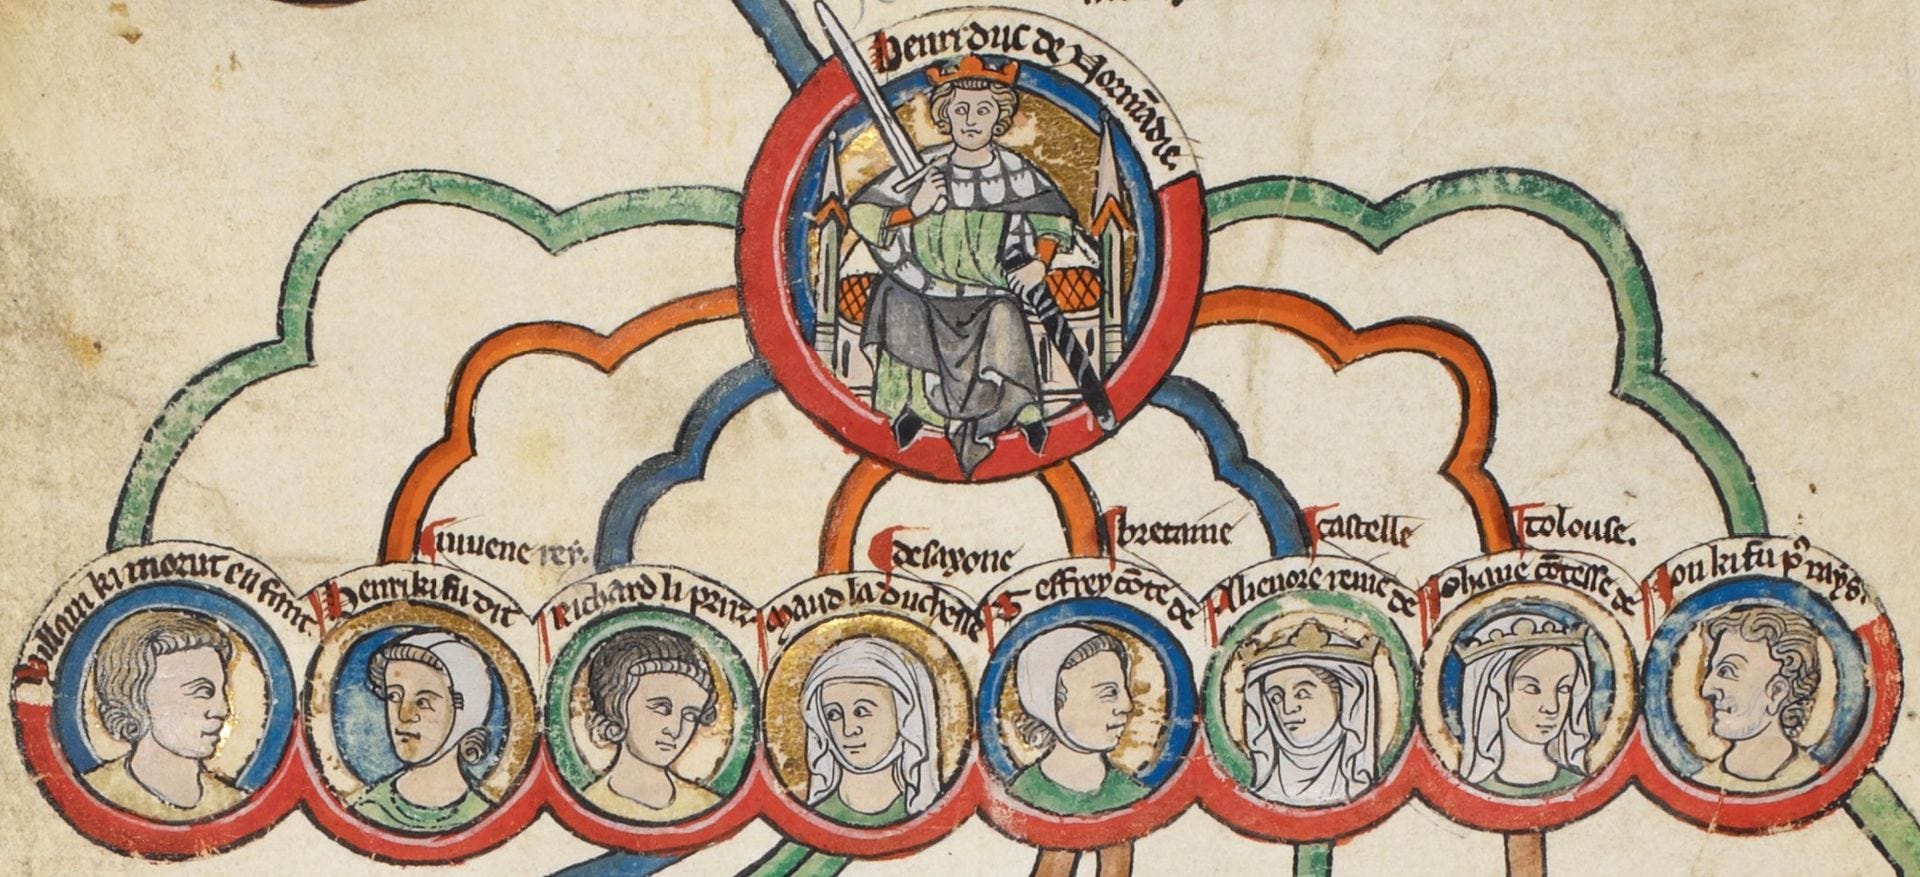 Henri duc de Normādie.
Willam ki morut enfant
Henri ki fu dit
iuuene rey.
Richard li prim⁹
Maud la duchesse
de saxone
Geffrey cōte de
bretaine
Alienore reine de
castelle
Iohane cōtesse de
tolouse.
Ion ki fu pᵒ rays.